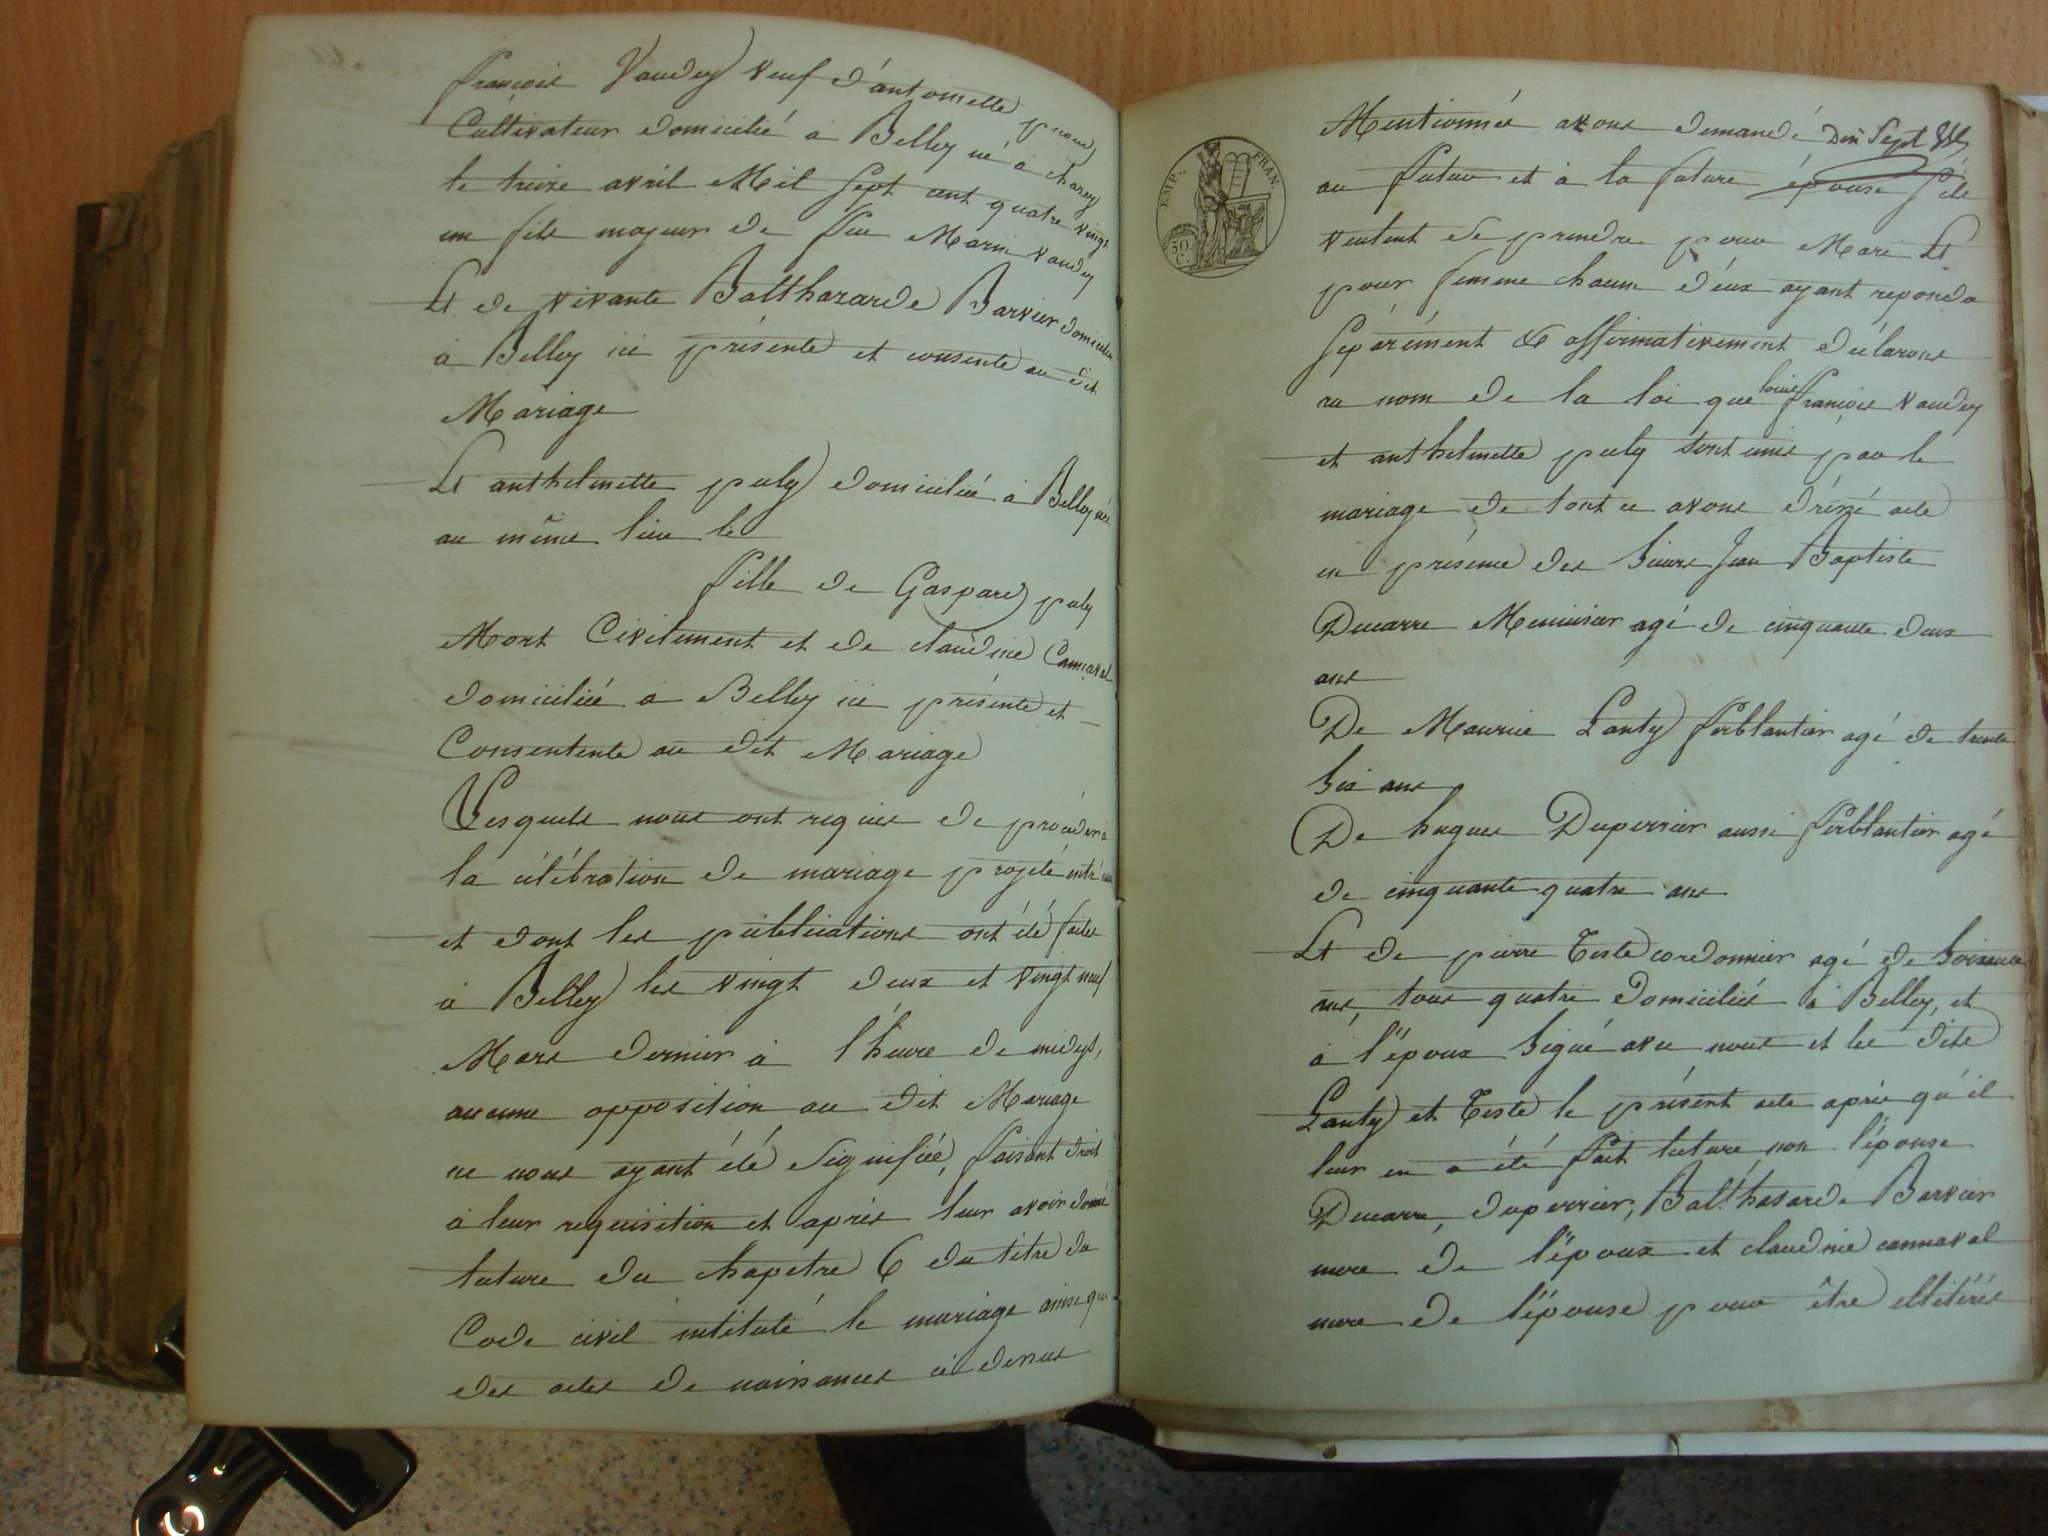 françois Vaudey veuf d'antoinette
Cultivateur domicilié à Belley né à charey
le treize avril Mil sept cent quatre vingt
un fils majeur de feu Marin vaudey
Et de vivante Balthazarde Barvier domiciliée
à Belley ici présente et consente au dit
Mariage
Et anthelmette puly domiciliée à Belley née
au même lieu le
fille de Gaspard puly
Mort Civilement et de claudine Cannaval
domiciliée à Belley ici présente et
Consentente au dit Mariage
Lesquels nous ont requis de procéder à
la célébration de mariage projeté entre eux
et dont les publications ont été faites
à Belley les vingt deux et vingt neuf
Mars dernier à l'heure de midy,
aucune opposition au dit Mariage
ne nous ayant été signifiée, faisant droit
à leur requisition et après leur avoir donné
lecture du chapitre 6 du titre du
Code civil intitulé le mariage ainsi que
des actes de naissances ci dessus
EMP. FRAN.
50.
C.
Mentionnés avons demandé Dix Sept
au futur et à la future épouse s'ils
veulent se prendre pour Mari Et
pour femme chacun d'eux ayant repondu
séparément & affirmativement déclarons
au nom de la loi que louis françois vaudey
et anthelmette puly sont unis par le
mariage de tout ce avons dréssé acte
en présence des sieurs Jean Baptiste
Ducarre Menuisier agé de cinquante deux
ans
De Maurice Lanty ferblantier agé de trente
six ans
De hugues Duperrier aussi ferblantier agé
de cinquante quatre ans
Et de pierre Teste cordonnier agé de soixante
ans, tous quatre domiciliés à Belley, et
à l'époux signé avec nous et les dits
Lanty et Teste le présent acte après qu'il
leur en a été fait lecture non l'épouse
Ducarre, duperrier, Balthasarde Barvier
mere de l'époux et claudine cannaval
mere de l'épouse pour être illitérés